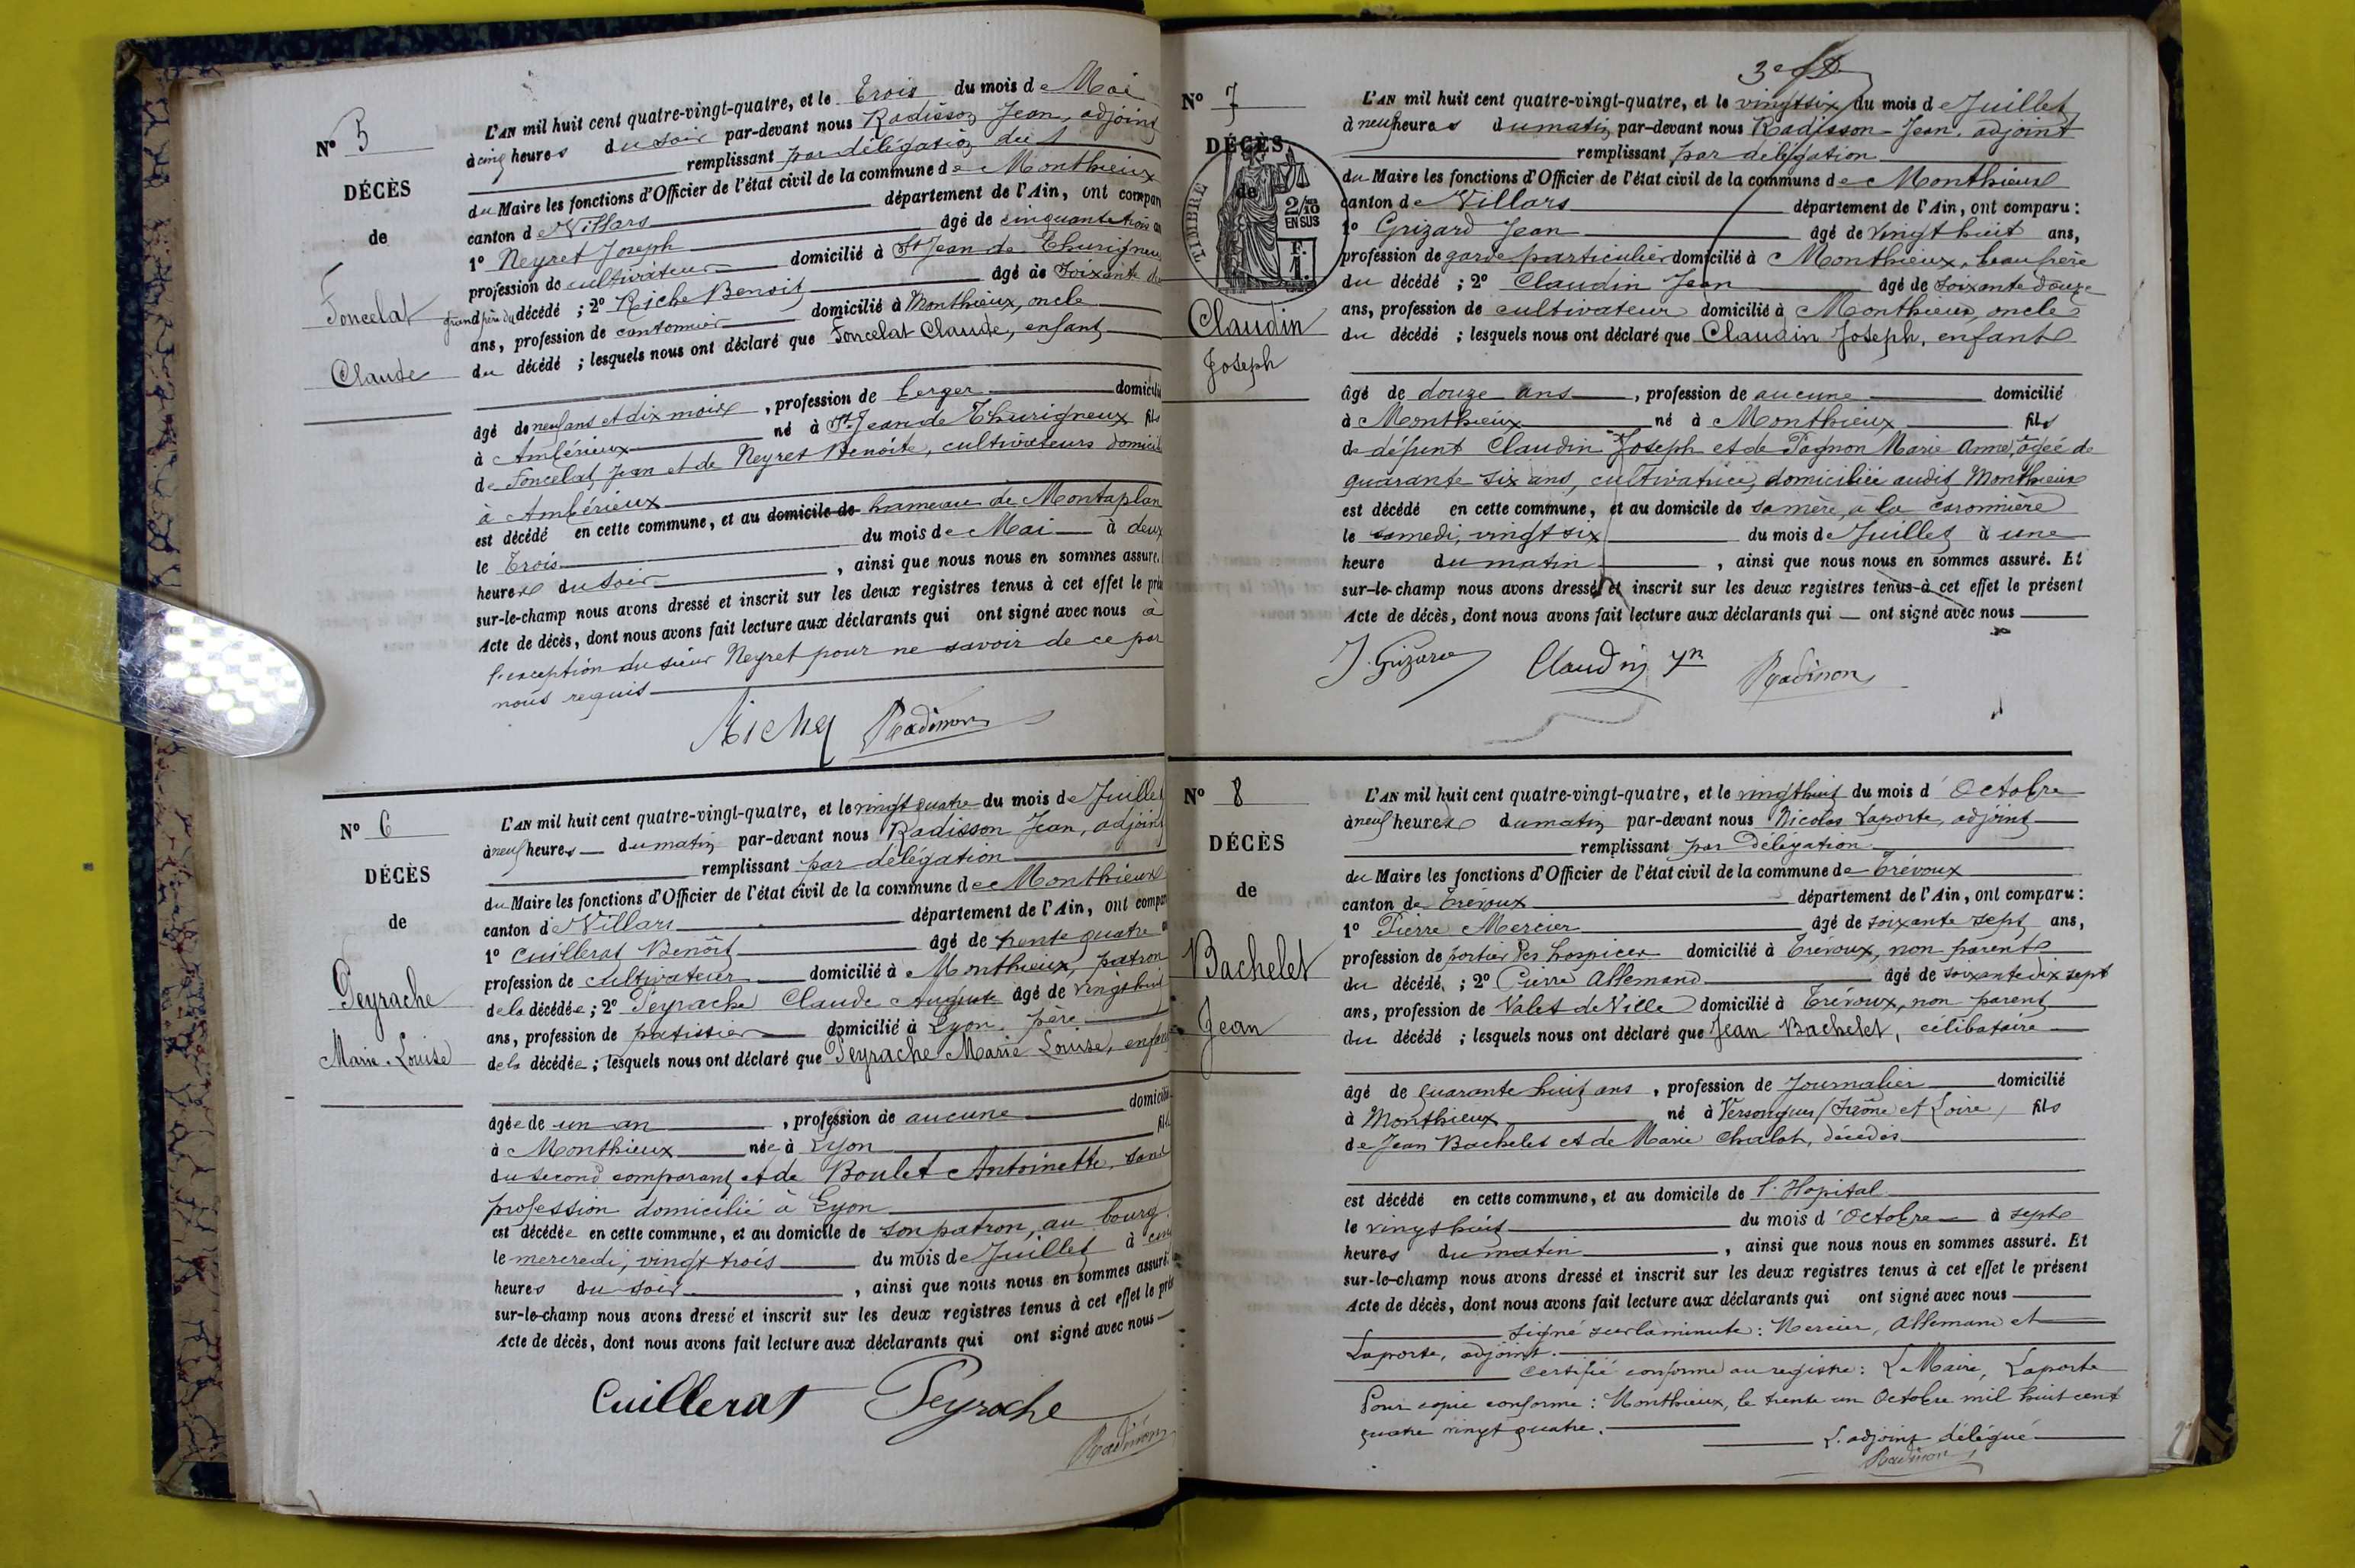 N° 5
DÉCÈS
de
Foncelat
Claude
L'AN mil huit cent quatre-vingt-quatre, et le Trois du mois de Mai
à cinq heures du soir par-devant nous Radisson Jean, adjoint
remplissant par délégation du
du Maire les fonctions d'Officier de l'état civil de la commune de Monthieux
canton de Villars département de l'Ain, ont compar
1° Neyret Joseph âgé de cinquante trois
profession de cultivateur domicilié à St Jean de Thurigneux
grand père du décédé ; 2° Riche Benoit âgé de soixante
ans, profession de cantonnier domicilié à Monthieux, oncle
du décédé ; lesquels nous ont déclaré que Foncelat Claude, enfant
âgé de neuf ans et dix mois, profession de berger domicilié
à Ambérieux né à St Jean de Thurigneux fils
de Foncelat Jean et de Neyret Benoite, cultivateurs domicil
à Ambérieux
est décédé en cette commune, et au domicile de hameau de Montaplan
le Trois du mois de Mai à deux
heures du soir, ainsi que nous nous en sommes assuré.
sur-le-champ nous avons dressé et inscrit sur les deux registres tenus à cet effet le pré
Acte de décès, dont nous avons fait lecture aux déclarants qui ont signé avec nous à
l'exception du sieur Neyret pour ne savoir de ce par
nous requis
Riche Radisson
N° 6
DÉCÈS
de
Peyrache
Marie Louise
L'AN mil huit cent quatre-vingt-quatre, et le vingt quatre du mois de Juillet
à neuf heures du matin par-devant nous Radisson Jean, adjoint
remplissant par délégation
du Maire les fonctions d'Officier de l'état civil de la commune de Monthieux
canton de Villars département de l'Ain, ont compar
1° Cuillerat Benoît âgé de trente quatre
profession de cultivateur domicilié à Monthieux, patron
de la décédée ; 2° Peyrache Claude Auguste âgé de vingt huit
ans, profession de patissier domicilié à Lyon, père
de la décédée ; lesquels nous ont déclaré que Peyrache Marie Louise, enfant
âgée de un an, profession de aucune domicilié
à Monthieux née à Lyon fille
du second comparant et de Boulet Antoinette, sans
profession domicilié à Lyon
est décédée en cette commune, et au domicile de son patron, au bourg
le mercredi, vingt trois du mois de Juillet à
heures du soir, ainsi que nous nous en sommes assuré.
sur-le-champ nous avons dressé et inscrit sur les deux registres tenus à cet effet le prés
Acte de décès, dont nous avons fait lecture aux déclarants qui ont signé avec nous
Cuillerat Peyrache
Radisson
3e
N° 7
DÉCÈS
de
TIMBRE
2/10
EN SUS
F.
1.
Claudin
Joseph
L'AN mil huit cent quatre-vingt-quatre, et le vingt six du mois de Juillet
à neuf heures du matin par-devant nous Radisson Jean, adjoint
remplissant par délégation
du Maire les fonctions d'Officier de l'état civil de la commune de Monthieux
canton de Villars département de l'Ain, ont comparu :
1° Grizard Jean âgé de vingt huit ans,
profession de garde particulier domicilié à Monthieux, beau frère
du décédé ; 2° Claudin Jean âgé de soixante douze
ans, profession de cultivateur domicilié à Monthieux, oncle
du décédé ; lesquels nous ont déclaré que Claudin Joseph, enfant
âgé de douze ans, profession de aucune domicilié
à Monthieux né à Monthieux fils
de défunt Claudin Joseph et de Pagnon Marie Anne, âgée de
quarante six ans, cultivatrice, domiciliée audit Monthieux
est décédé en cette commune, et au domicile de sa mère, à la caronnière
le samedi, vingt six du mois de Juillet à une
heure du matin, ainsi que nous nous en sommes assuré. Et
sur-le-champ nous avons dressé et inscrit sur les deux registres tenus à cet effet le présent
Acte de décès, dont nous avons fait lecture aux déclarants qui ont signé avec nous
J. Grizard Claudin Radisson
N° 8
DÉCÈS
de
Bachelet
Jean
L'AN mil huit cent quatre-vingt-quatre, et le vingt huit du mois d'Octobre
à neuf heures du matin par-devant nous Nicolas Laporte, adjoint
remplissant par Délégation
du Maire les fonctions d'Officier de l'état civil de la commune de Trévoux
canton de Trévoux département de l'Ain, ont comparu :
1° Pierre Mercier âgé de soixante sept ans,
profession de portier des hospices domicilié à Trévoux, non parent
du décédé ; 2° Pierre Allemand âgé de soixante dix sept
ans, profession de Valet de Ville domicilié à Trévoux, non parent
du décédé ; lesquels nous ont déclaré que Jean Bachelet, célibataire
âgé de quarante huit ans, profession de Journalier domicilié
à Monthieux né à (Saône et Loire) fils
de Jean Bachelet et de Marie Chalot, décédés
est décédé en cette commune, et au domicile de l'Hopital
le vingt huit du mois d'Octobre à sept
heures du matin, ainsi que nous nous en sommes assuré. Et
sur-le-champ nous avons dressé et inscrit sur les deux registres tenus à cet effet le présent
Acte de décès, dont nous avons fait lecture aux déclarants qui ont signé avec nous
signé sur la minute : Mercier, Allemand et
Laporte, adjoint.
Certifié conforme au registre : Le Maire, Laporte
Pour copie conforme : Monthieux, le trente un Octobre mil huit cent
quatre vingt quatre.
L'adjoint délégué
Radisson